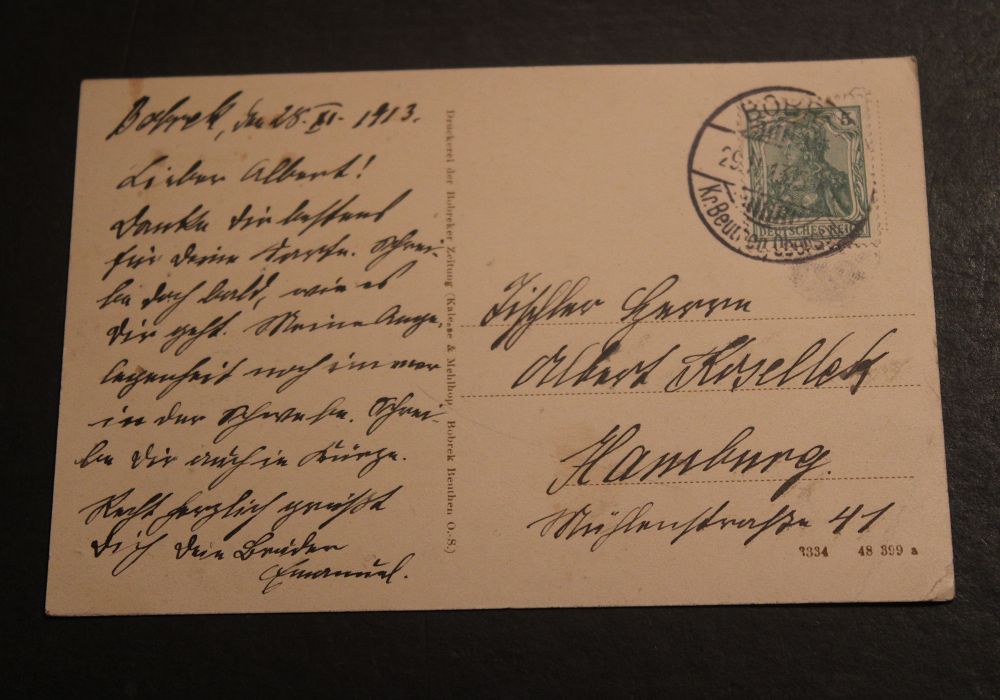 Bobrek, den 28. XI. 1913.
Lieber Albert!
Danke dir bestens
für deine Karte. Schrei-
be doch bald, wie es
dir geht. Meine Ange-
legenheit noch immer
in der Schwebe. Schrei-
be dir auch in Kürze.
Recht herzlich grüßt
Dich dein Bruder
Emanuel.
Druckerei der Bobreker Zeitung (Kalesse & Mehlhop, Bobrek Beuthen O.-S.)
BOBREK
29.
Kr. Beuthen
5
DEUTSCHES REICH
Tischler Herrn
Albert Kosellek
Hamburg.
Mühlenstraße 41
3334 48 399 a